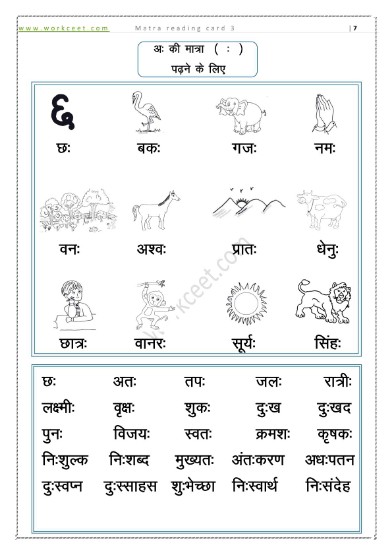 www.workceet.com Matra reading card 3 |7
अः की मात्रा ( ः )
पढ़ने के लिए
६
छः बकः गजः नमः
वनः अश्वः प्रातः धेनुः
छात्रः वानरः सूर्यः सिंहः
www.workceet.com
छः अतः तपः जलः रात्रीः
लक्ष्मीः वृक्षः शुकः दुःख दुःखद
पुनः विजयः स्वतः क्रमशः कृषकः
निःशुल्क निःशब्द मुख्यतः अंतःकरण अधःपतन
दुःस्वप्न दुःस्साहस शुःभेच्छा निःस्वार्थ निःसंदेह